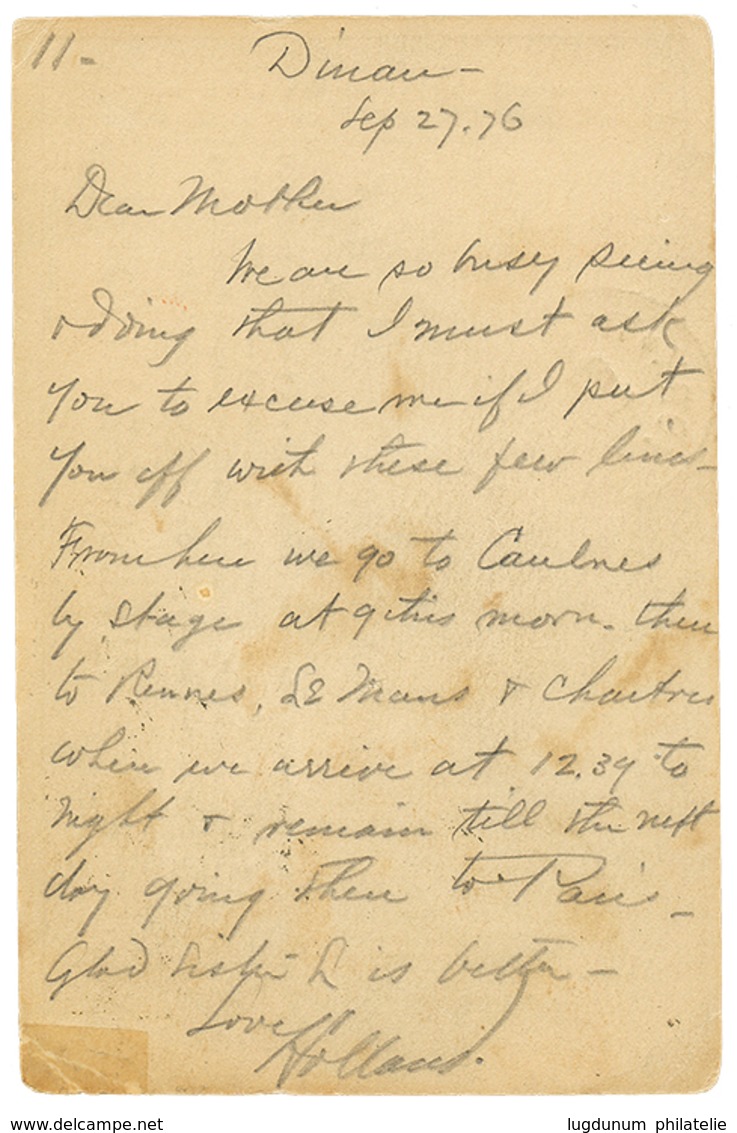 11-
Dinan -
Sep 27. 76
Dear Mother
We are so busy seeing
& doing that I must ask
you to excuse me if I put
you off with these few lines -
From here we go to Caulnes
by stage at 9 this morn. then
to Rennes, Le Mans & Chartres
where we arrive at 12.39 to
night & remain till the next
day going then to Paris -
Glad Sister L is better -
Love
Holland.
lugdunum philatelie